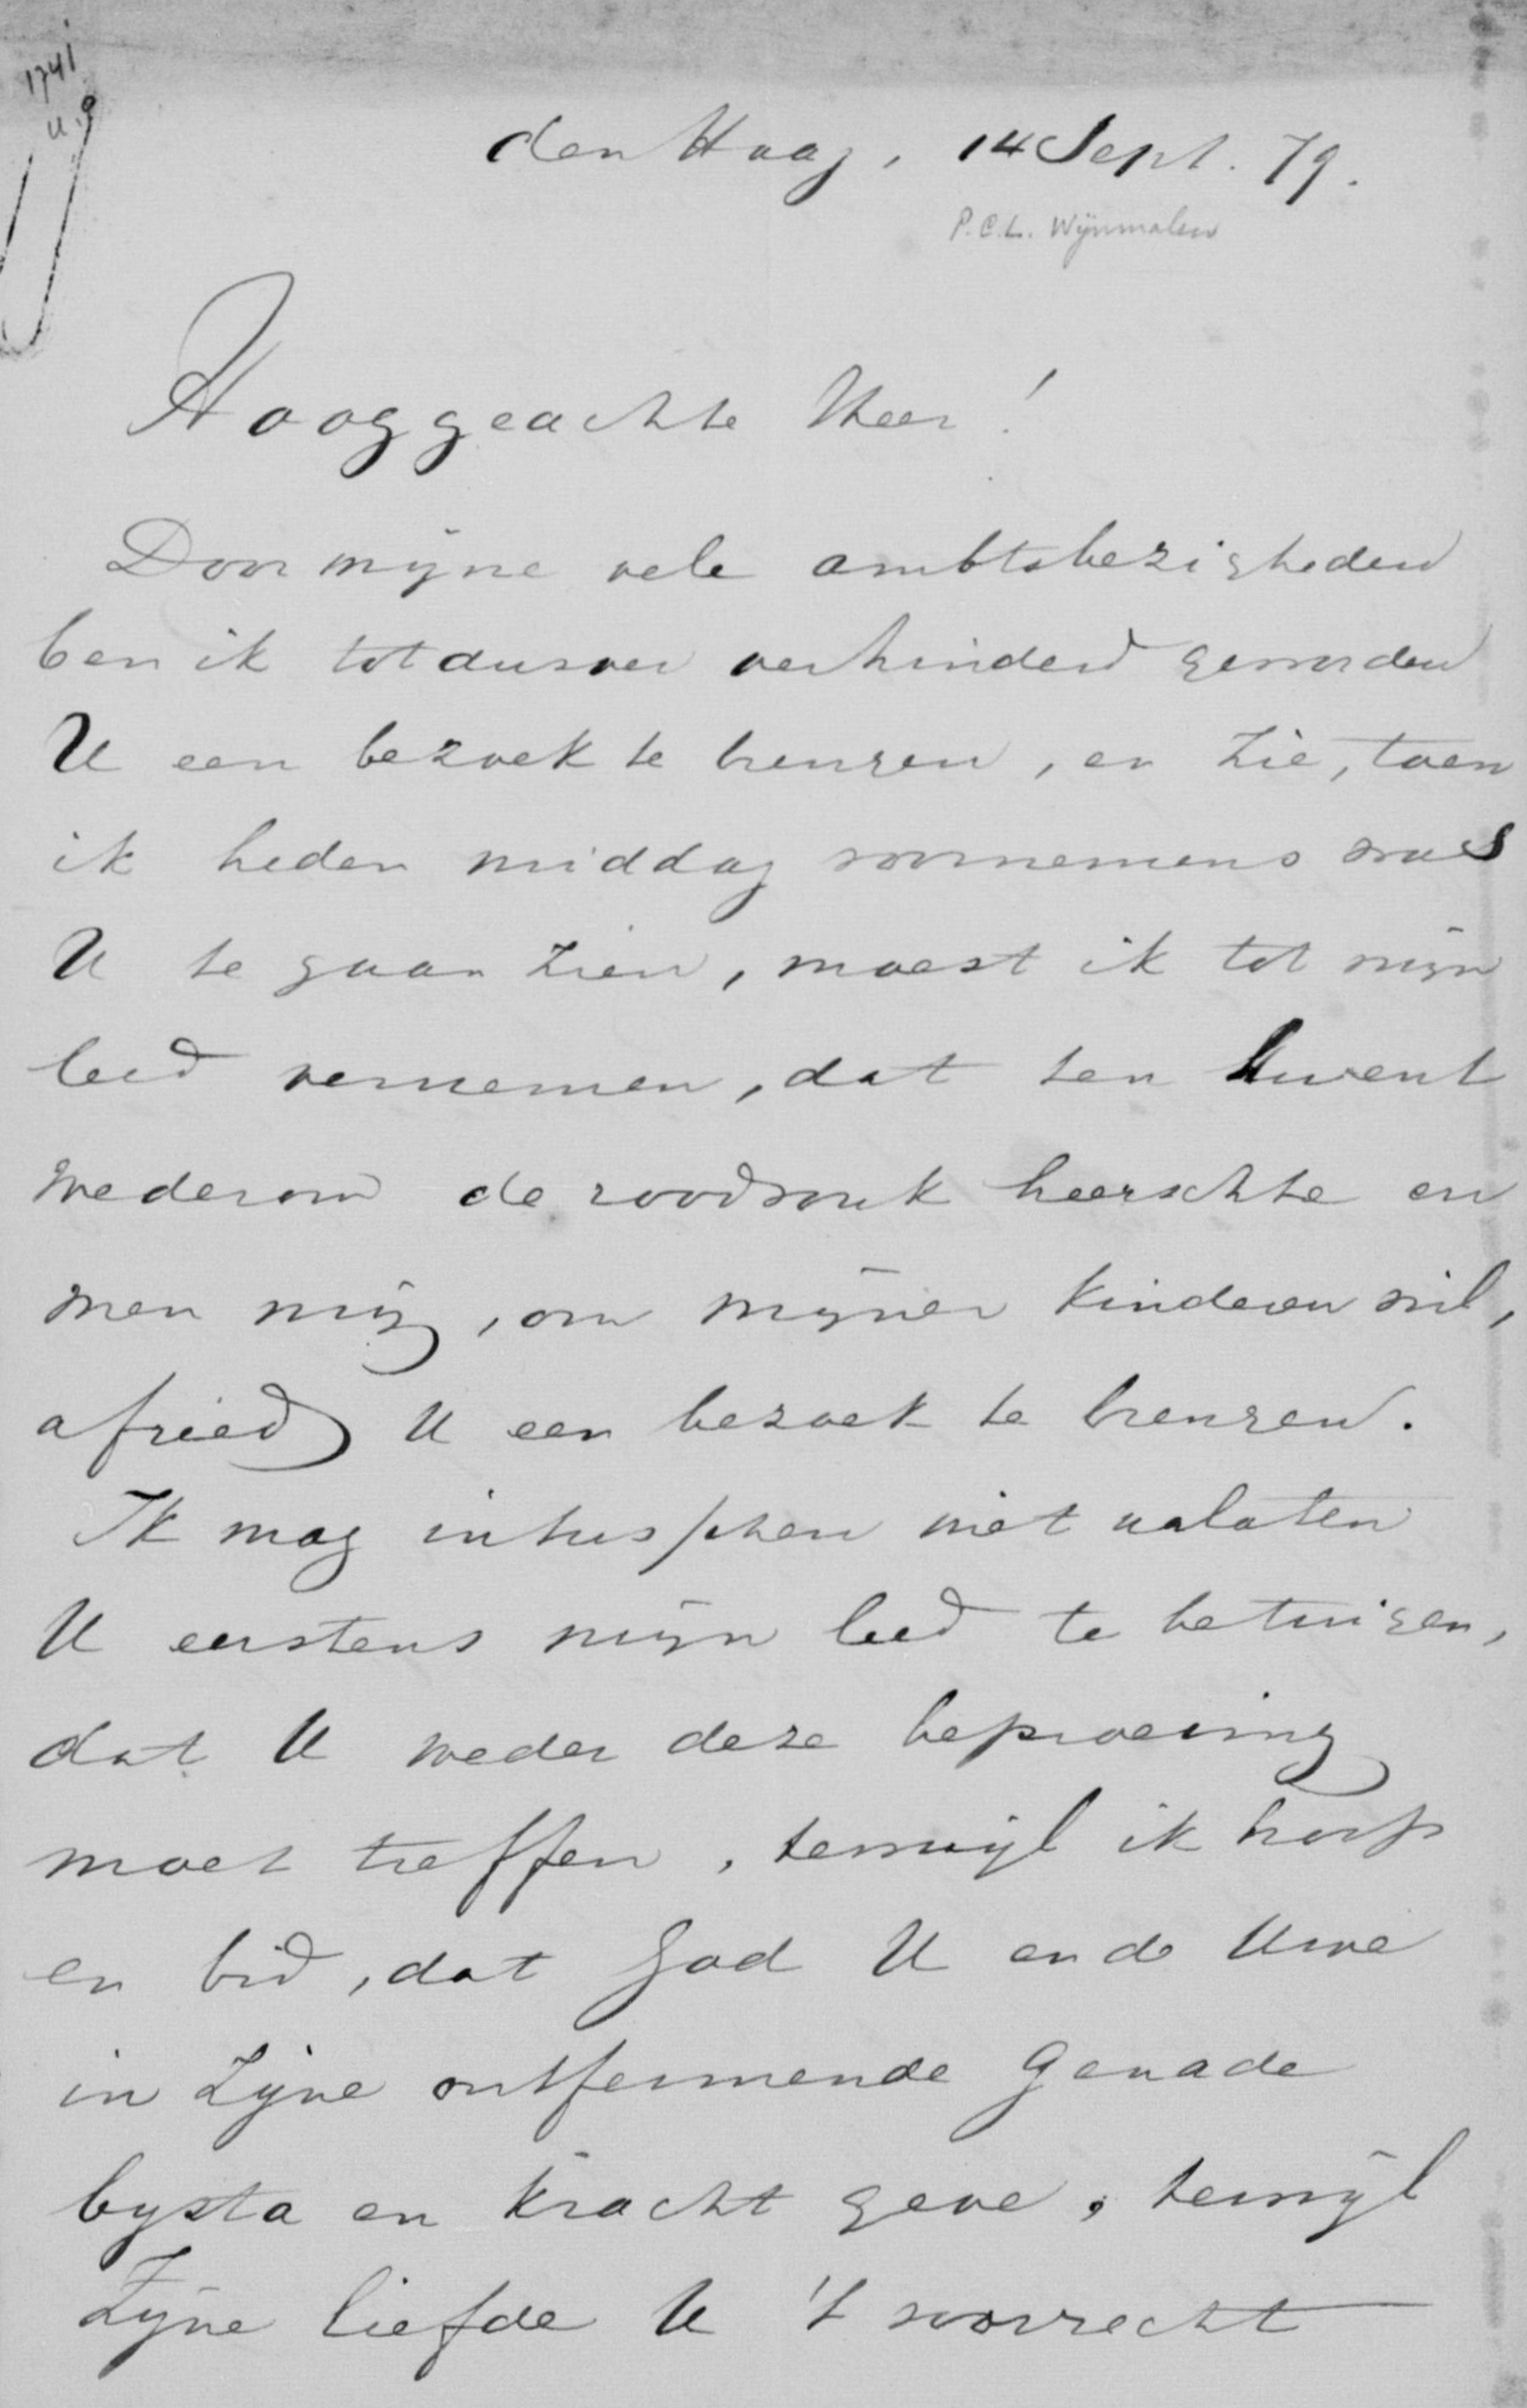 1741
den Haag, 14 Sept. 79.
P.C.L. Wijnmalen
Hooggeachte Heer!
Door mijne vele ambtsbezigheden
ben ik tot dusver verhinderd geworden
U een bezoek te brengen, en zie, toen
ik heden middag voornemens was
U te gaan zien, moest ik tot mijn
leed vernemen, dat ten Uwent
wederom de roodvonk heerschte en
men mij, om mijner kinderen wil,
afried U een bezoek te brengen.
Ik mag intusschen niet nalaten
U eerstens mijn leed te betuigen,
dat U weder deze beproeving
moet treffen, terwijl ik hoop
en bid, dat God U en de Uwe
in Zijne ontfermende Genade
bysta en kracht geve, terwijl
Zijne liefde U 't voorrecht